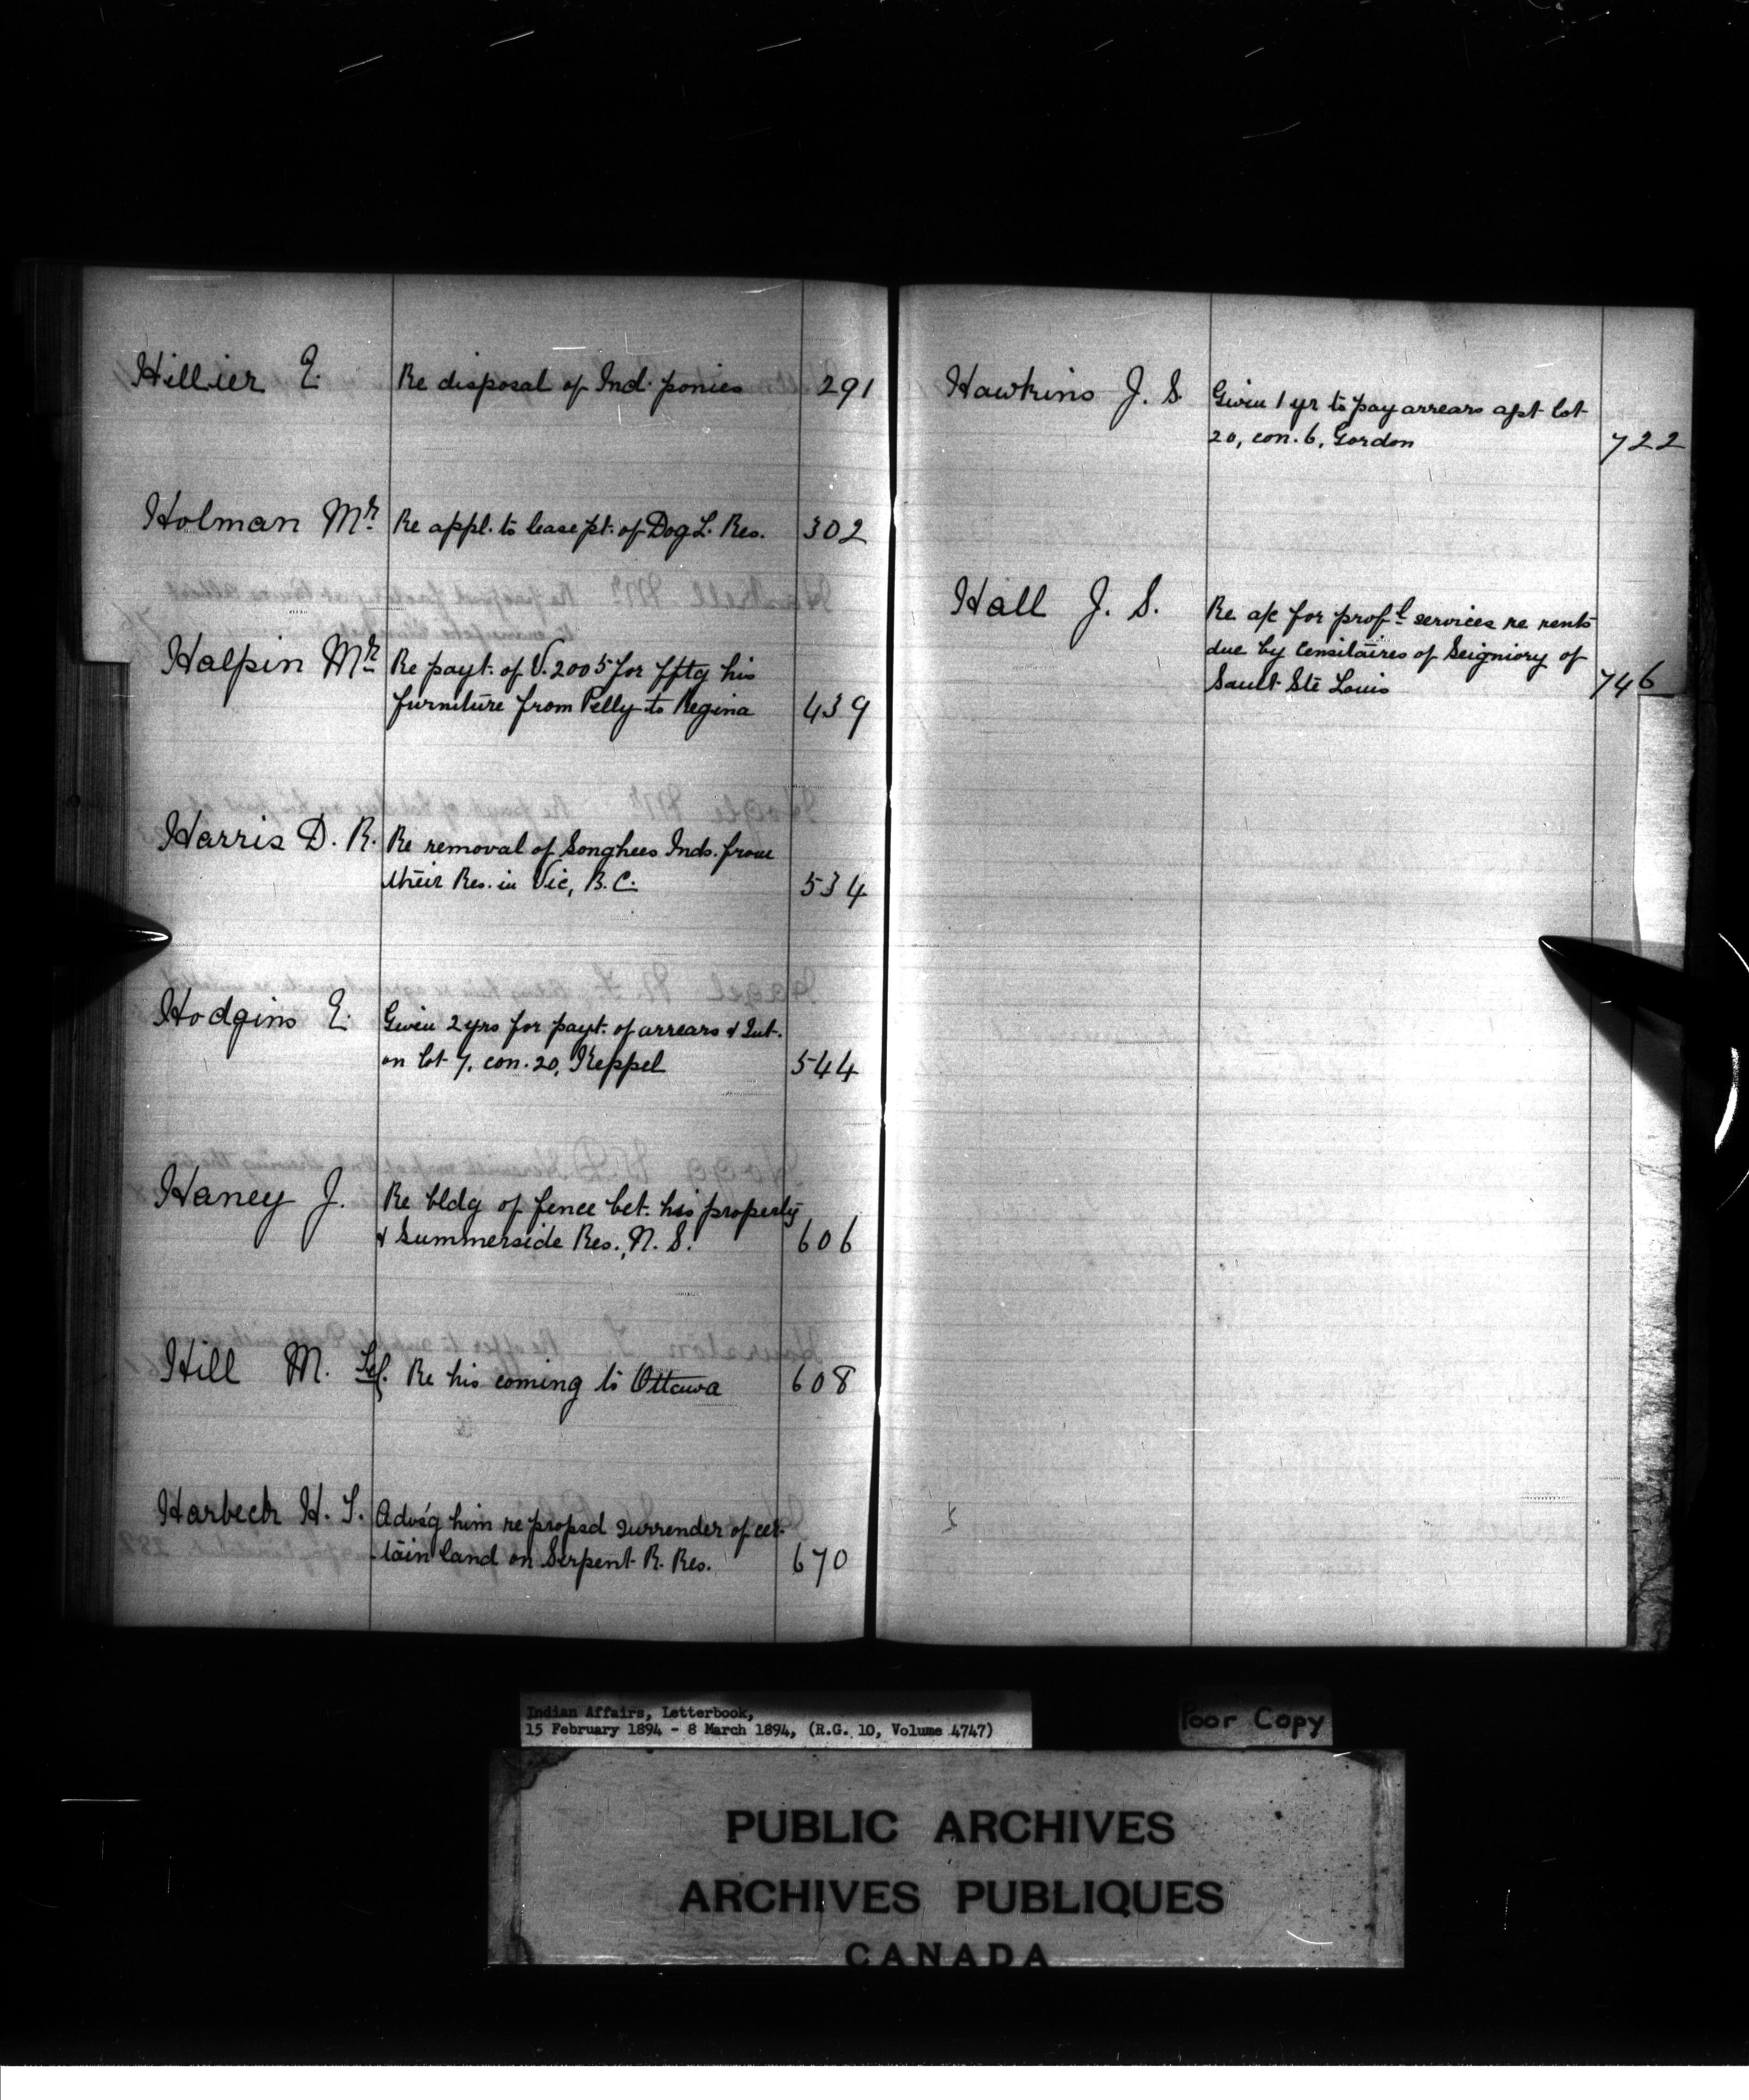 Hillier E. Re disposal of Ind. ponies 291
Holman Mr. Re appl. to lease pt. of Dog L. Res. 302
Halpin Mr. Re payt. of V. 2005 for fftg his
furniture from Pelly to Regina 439
Harris D. R. Re removal of Songhees Inds. from
their Res. in Vic, B.C. 534
Hodgins E. Given 2 yrs for payt. of arrears & Int.
on lot 7, con. 20, Keppel 544
Haney J. Re bldg of fence bet. his property
& Summerside Res., N. S. 606
Hill M. Re his coming to Ottawa 608
Harbeck H. S. Advs'g him re propsd surrender of cer-
-tain land on Serpent R. Res. 670
Hawkins J. S. Given 1 yr to pay arrears agst lot
20, con. 6, Gordon 722
Hall J. S. Re a/c for prof'l services re rents
due by Censitaires of Seigniory of
Sault Ste Louis 746
Indian Affairs, Letterbook,
15 February 1894 - 8 March 1894, (R.G. 10, Volume 4747)
Poor Copy
PUBLIC ARCHIVES
ARCHIVES PUBLIQUES
CANADA